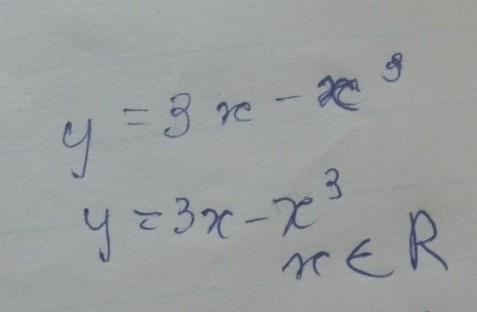 y = 3x - x³
y = 3x - x³
x ∈ R